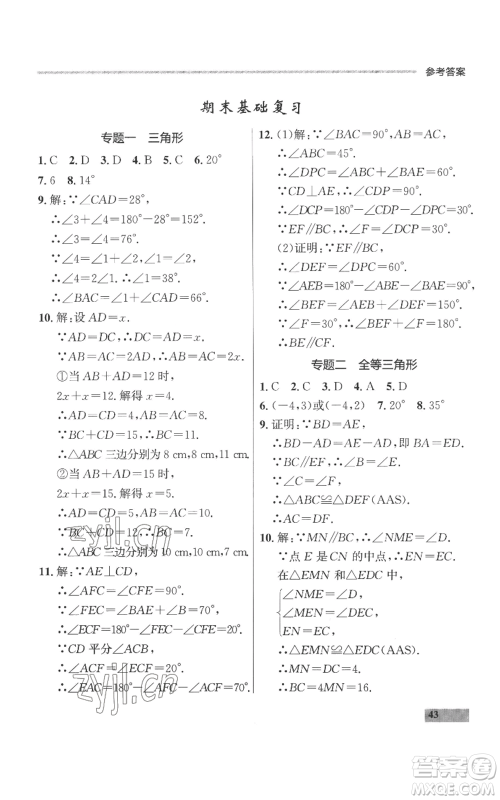 参考答案
期末基础复习
专题一 三角形
1. C 2. D 3. D 4. B 5. C 6. 20°
7. 6 8. 14°
9. 解:∵∠CAD=28°,
∴∠3+∠4=180°-28°=152°.
∴∠3=∠4=76°.
∵∠4=∠1+∠2,∠1=∠2,
∴∠4=2∠1. ∴∠1=38°.
∴∠BAC=∠1+∠CAD=66°.
10. 解:设AD=x.
∵AD=DC,∴AD=DC=x.
∵AB=AC=2AD,∴AB=2x.
①当AB+AD=12时,
2x+x=12.解得x=4.
∴BC=DC+15=19.
∴△ABC三边分别为8 cm,8 cm,19 cm.
②当AB+AD=15时,
2x+x=15.解得x=5.
∴BC=DC+12=17.
∴△ABC三边分别为10 cm,10 cm,17 cm.
11. 解:∵AE⊥CD,
∴∠AFC=∠CFE=90°.
∵∠FEC=∠BAE+∠B=70°,
∴∠FCE=∠CFE-∠FEC=20°.
∵CD平分∠ACB,
∴∠ACF=∠FCE=20°.
∴∠EAC=180°-∠AFC-∠ACF=70°.
12. (1)解:∵∠BAC=90°,AB=AC,
∴∠ABC=45°.
∴∠DPC=∠ABC+∠PAB=60°.
∵CD⊥AP,∴∠CDP=90°.
∴∠DCP=180°-∠CDP-∠DPC=30°.
∵EF∥BC,∴∠F=∠DCP=30°.
(2)证明:∵EF∥BC,
∴∠DEF=∠DPC=60°.
∵∠AEB=180°-∠ABE-∠PAB=150°,
∴∠BEF=∠AEB-∠DEF=90°.
∴BE⊥CF.
专题二 全等三角形
1. C 2. C 3. D 4. A 5. D
6. (-4,3)或(-4,2) 7. 20° 8. 35°
9. 证明:∵BD=AE,
∴BD-AD=AE-AD,即AB=DE.
∵BC∥EF,∴∠B=∠E.
∵∠C=∠F,
∴△ABC≌△DEF(AAS).
10. 解:∵MN∥BC,∴∠NME=∠D.
∵点E是CN的中点,∴EN=EC.
在△EMN和△EDC中,
∠NME=∠D,
∠MEN=∠DEC,
EN=EC.
∴△EMN≌△EDC(AAS).
∴MN=DC=4.
∴BC=BD-DC=20-4=16.
43